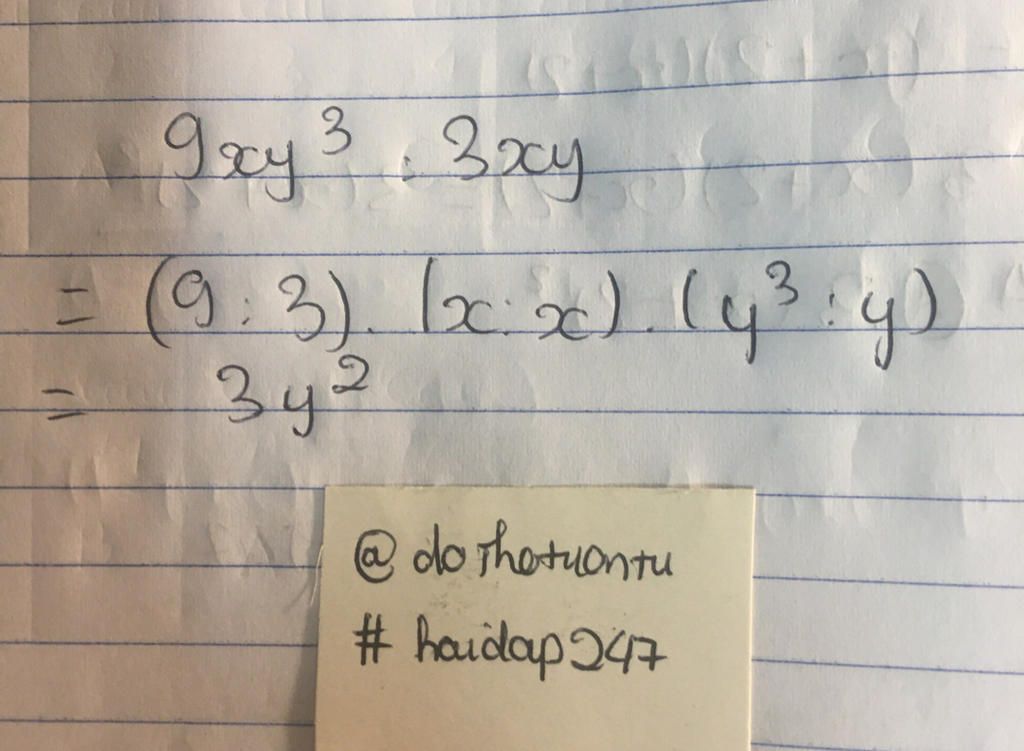 9xy³ : 3xy
= (9 : 3) . (x : x) . (y³ : y)
= 3y²
@dothetuantu
# hoidap247